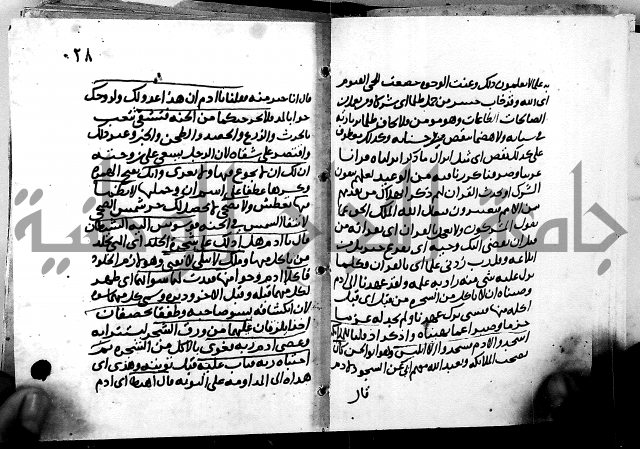 به علما لا يعلمون ذلك وعنت الوجوه خضعت للحي القيوم
اي الله وقد خاب خسر من حمل ظلما اي شركا ومن يعمل من
الصالحات الطاعات وهو مومن فلا يخاف ظلما بزيادة
في سياته ولا هضما بنقص من حسناته وكذلك معطوف
على كذلك نقص اي مثل انزال ما ذكر انزلناه قرانا
عربيا وصرفنا كررنا فيه من الوعيد لعلهم يتقون
الشرك او يحدث القران لهم ذكرا بهلاك من تقدمهم
من الامم فيعتبرون فتعالى الله الملك الحق عما
يقول المشركون ولا تعجل بالقران اي بقراته من
قبل ان يقضى اليك وحيه اي يفرغ جبريل من
ابلاغه وقل رب زدني علما اي بالقران فكلما
نزل عليه شي منه زاد به علمه ولقد عهدنا الى ادم
وصيناه ان لا ياكل من الشجرة من قبل اي قبل
اكله منها فنسي ترك عهدنا ولم نجد له عزما
حزما وصبرا عما نهيناه و اذكر اذ قلنا للملائكة
اسجدوا لادم فسجدوا الا ابليس وهو ابو الجن كان
يصحب الملائكة ويعبد الله معهم ابى عن السجود لادم
قال
٠٢٨
قال انا خير منه فقلنا يا ادم ان هذا عدو لك ولزوجك
حوا بالمد فلا يخرجنكما من الجنة فتشقى تتعب
بالحرث والزرع والحصد والطحن والخبز وغير ذلك
واقتصر على شقاه لان الرجل يسعى على زوجته
ان لك ان لا تجوع فيها ولا تعرى وانك بفتح الهمزة
وكسرها عطفا على اسم ان وجملتها لا تظما
فيها تعطش ولا تضحى لا يحصل لك حر شمس الضحى
لانتفا الشمس في الجنة فوسوس اليه الشيطان
قال يا ادم هل ادلك على شجرة الخلد اي التي يخلد
من ياكل منها وملك لا يبلى لا يفنى وهو لازم الخلود
فاكلا ادم وحوا منها فبدت لهما سواتهما اي ظهر
لكل منهما قبله وقبل الاخر ودبره وسمي كل منهما سوة
لان انكشافه يسو صاحبه وطفقا يخصفان
اخذا يلزقان عليهما من ورق الجنة ليستترا به
وعصى ادم ربه فغوى بالاكل من الشجرة ثم
اجتباه ربه فتاب عليه قبل توبته وهدى اي
هداه الى المداومة على التوبة قال اهبطا اي ادم
جامعة النجاح الوطنية